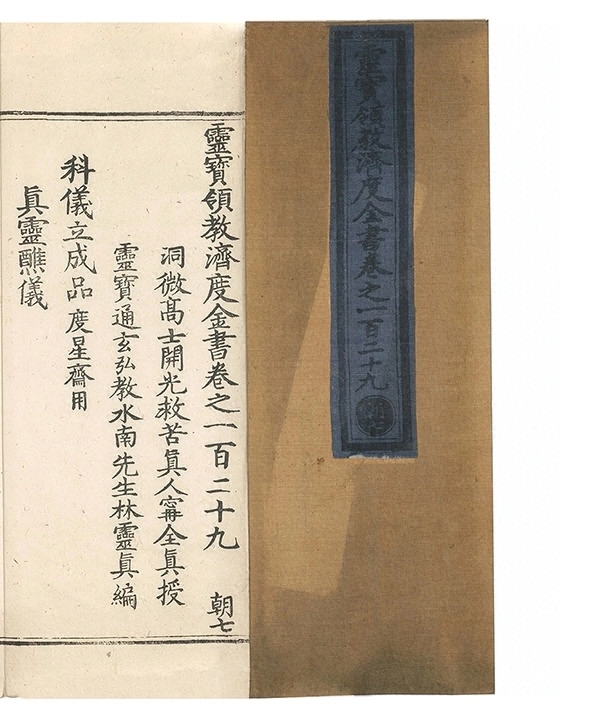 靈寶領教濟度金書卷之一百二十九
靈寶領教濟度金書卷之一百二十九 朝七
洞微髙士開光救苦眞人寗全眞授
靈寶通玄弘教水南先生林靈眞編
科儀立成品 度星齋用
眞靈醮儀